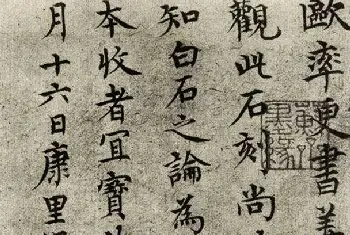 歐率更書善
觀此石刻尚
知白石之論為
本收者宜寶
月十六日康里